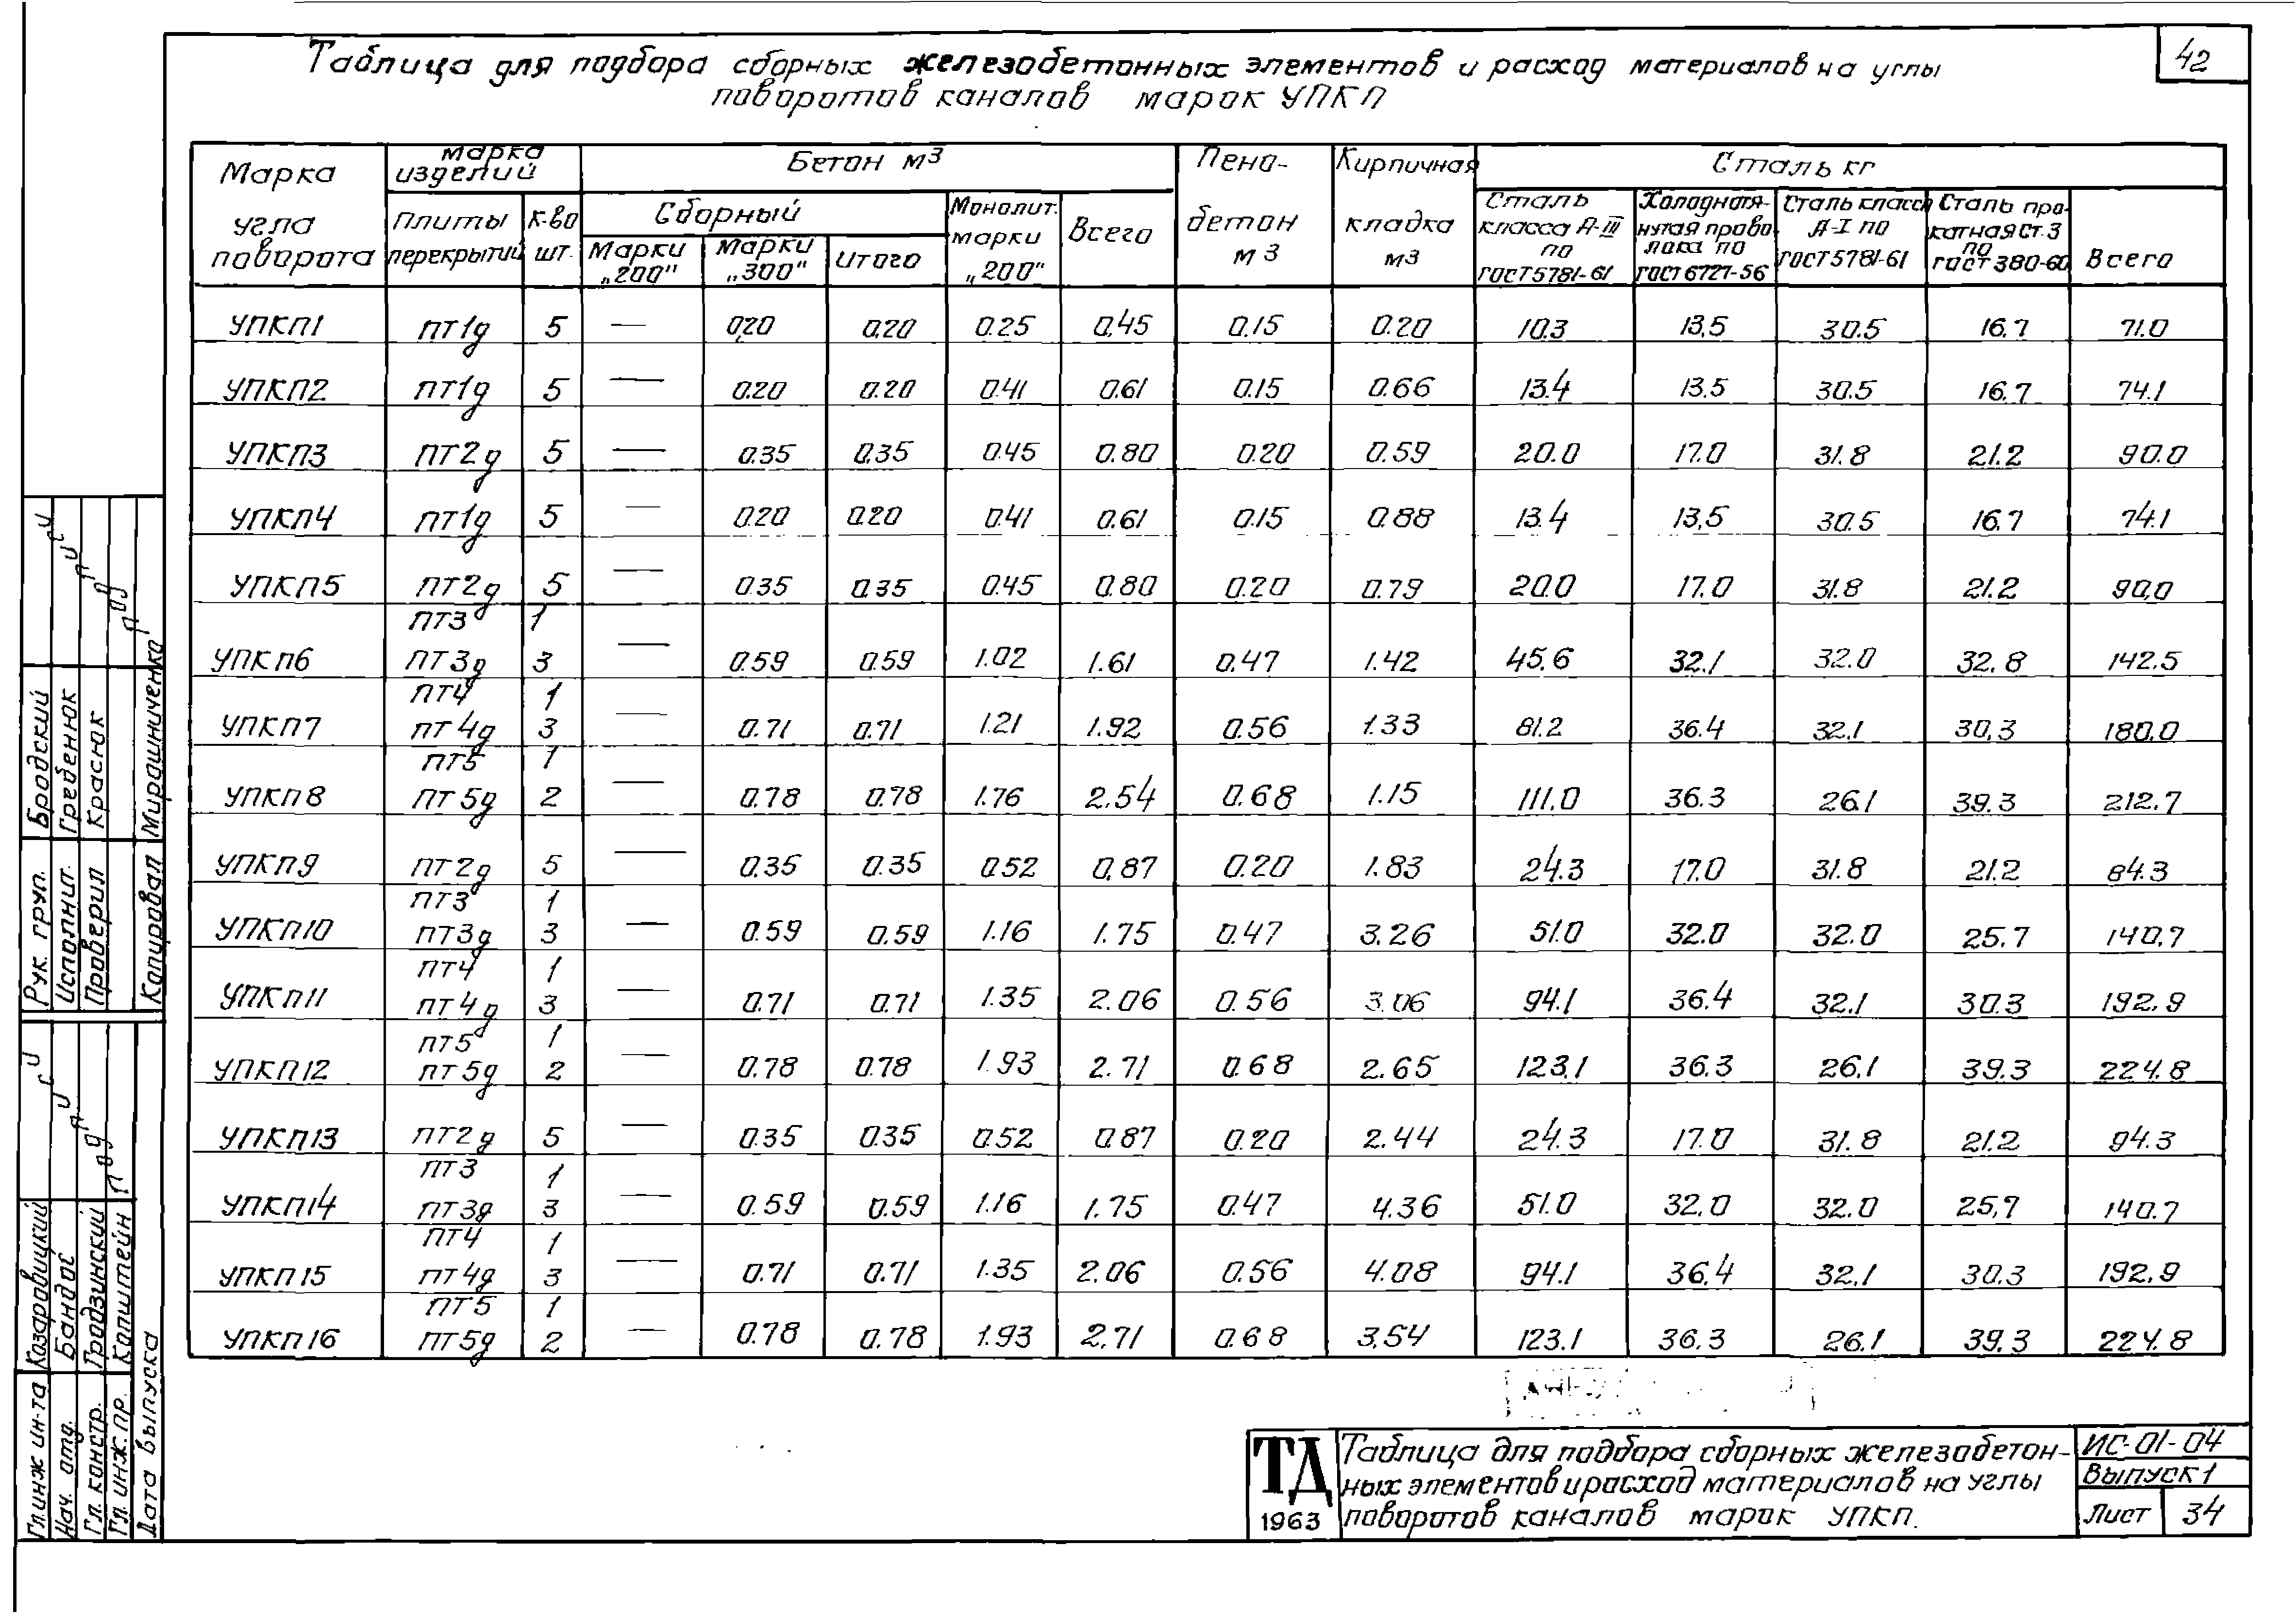 42
Таблица для подбора сборных железобетонных элементов и расход материалов на углы
поворотов каналов марок УПКП
Марка угла поворота
Марка изделий
Плиты перекрытий
К-во шт.
Бетон м3
Сборный
Марки „200"
Марки „300"
Итого
Монолит. марки „200"
Всего
Пено-бетон м3
Кирпичная кладка м3
Сталь кг
Сталь класса А-III по ГОСТ 5781-61
Холоднотянутая проволока по ГОСТ 6727-56
Сталь класса А-I по ГОСТ 5781-61
Сталь прокатная ст.3 по ГОСТ 380-60
Всего
УПКП1 ПТ1д 5 — 0.20 0.20 0.25 0.45 0.15 0.20 10.3 13,5 30.5 16.7 71.0
УПКП2 ПТ1д 5 — 0.20 0.20 0.41 0.61 0.15 0.66 13.4 13.5 30.5 16.7 74.1
УПКП3 ПТ2д 5 — 0.35 0.35 0.45 0.80 0.20 0.59 20.0 17.0 31.8 21.2 90.0
УПКП4 ПТ1д 5 — 0.20 0.20 0.41 0.61 0.15 0.88 13.4 13,5 30.5 16.7 74.1
УПКП5 ПТ2д 5 — 0.35 0.35 0.45 0.80 0.20 0.79 20.0 17.0 31.8 21.2 90,0
ПТ3 1
УПКП6 ПТ3д 3 — 0.59 0.59 1.02 1.61 0.47 1.42 45.6 32.1 32.0 32.8 142.5
ПТ4 1
УПКП7 ПТ4д 3 — 0.71 0.71 1.21 1.92 0.56 1.33 81.2 36.4 32.1 30,3 180.0
ПТ5 1
УПКП8 ПТ5д 2 — 0.78 0.78 1.76 2.54 0.68 1.15 111.0 36.3 26.1 39.3 212.7
УПКП9 ПТ2д 5 — 0.35 0.35 0.52 0,87 0.20 1.83 24.3 17.0 31.8 21.2 84.3
ПТ3 1
УПКП10 ПТ3д 3 — 0.59 0.59 1.16 1.75 0.47 3.26 51.0 32.0 32.0 25.7 140,7
ПТ4 1
УПКП11 ПТ4д 3 — 0.71 0.71 1.35 2.06 0.56 3.06 94.1 36.4 32.1 30.3 192.9
ПТ5 1
УПКП12 ПТ5д 2 — 0.78 0.78 1.93 2.71 0.68 2.65 123.1 36.3 26.1 39.3 224.8
УПКП13 ПТ2д 5 — 0.35 0.35 0.52 0.87 0.20 2.44 24.3 17.0 31.8 21.2 94.3
ПТ3 1
УПКП14 ПТ3д 3 — 0.59 0.59 1.16 1.75 0.47 4.36 51.0 32.0 32.0 25,7 140.7
ПТ4 1
УПКП15 ПТ4д 3 — 0.71 0.71 1.35 2.06 0.56 4.08 94.1 36.4 32.1 30.3 192.9
ПТ5 1
УПКП16 ПТ5д 2 — 0.78 0.78 1.93 2.71 0.68 3,54 123.1 36.3 26.1 39.3 224.8
Рук. груп. Бродский
Исполнит. Гребенюк
Проверил Краснюк
Подписи
Копировал Мирошниченко
Гл.инж ин-та Казаровицкий
Нач. отд. Бандос
Гл. констр. Гродзинский
Гл. инж. пр. Капштейн
Подписи
Дата выпуска
ТД
1963
Таблица для подбора сборных железобетон-
ных элементов и расход материалов на углы
поворотов каналов марок УПКП.
ИС-01-04
Выпуск 1
Лист 34